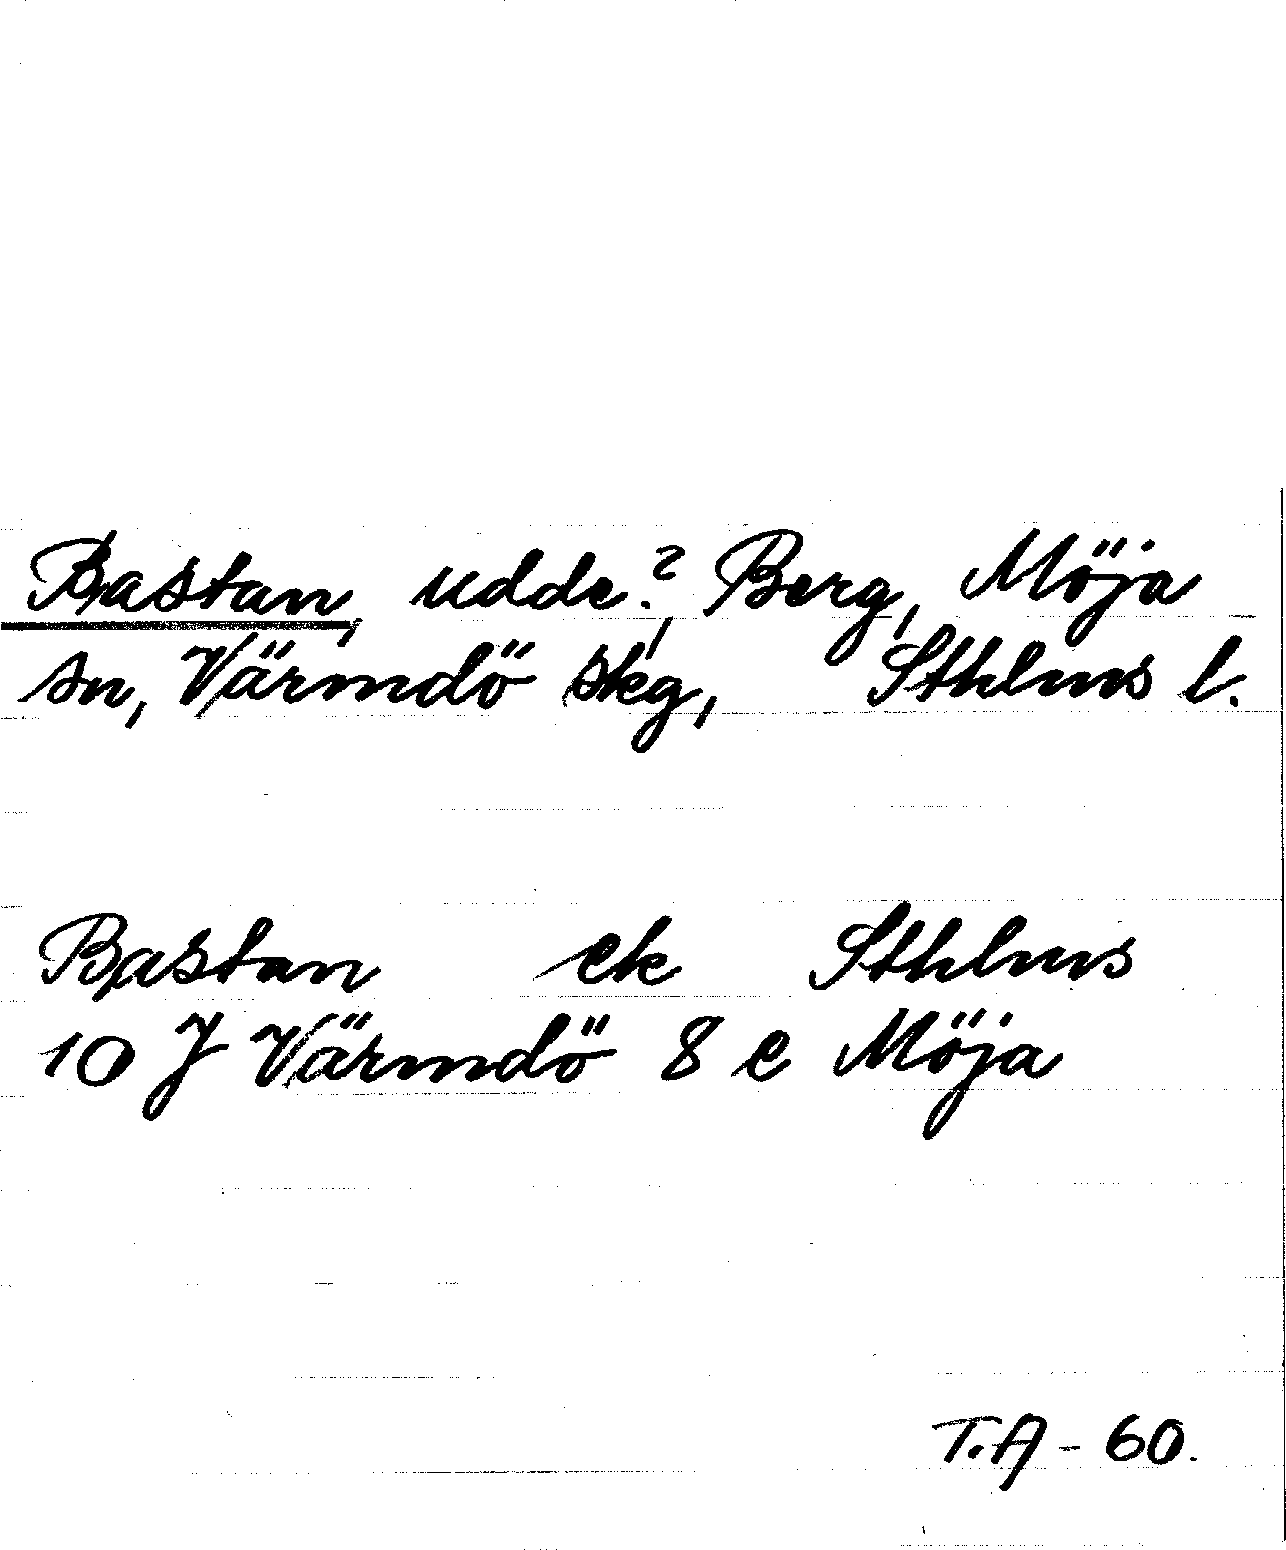 Bastan, udde? Berg, Möja
sn, Värmdö skg, Sthlms l.
Bastan ek Sthlms
10 J Värmdö 8 e Möja
T.A - 60.